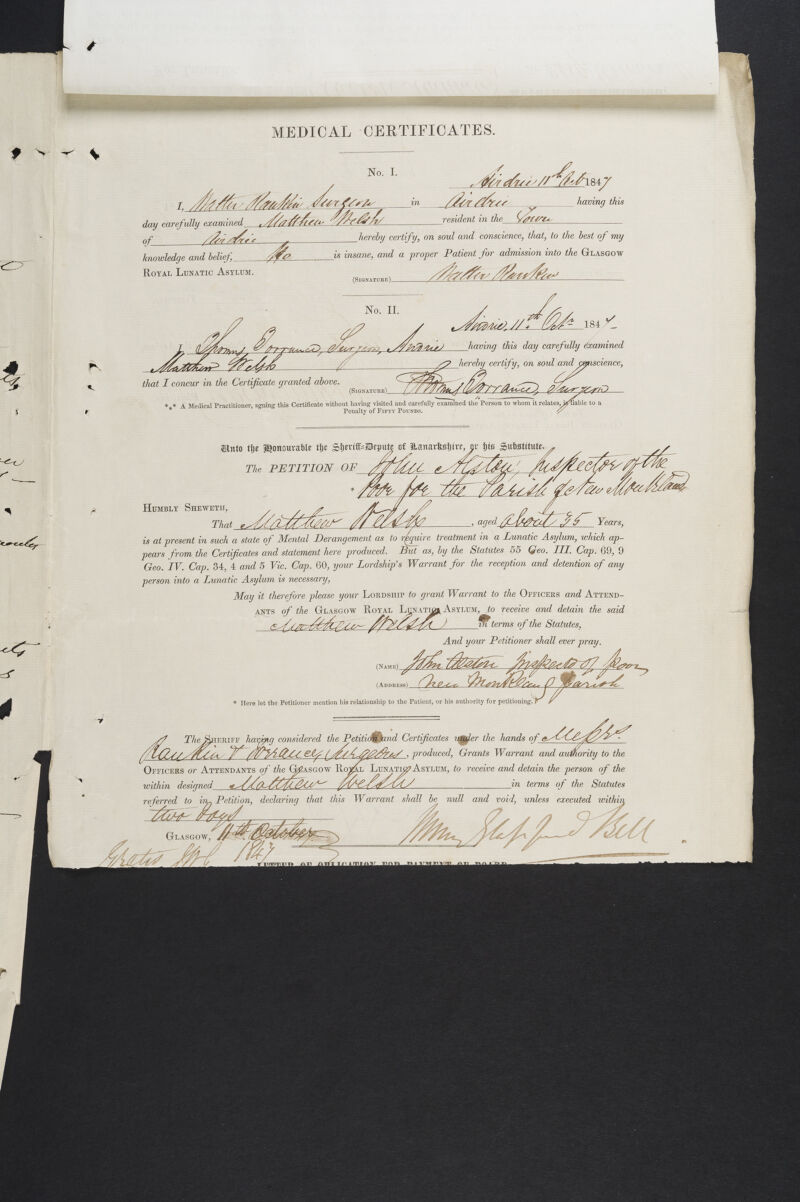 MEDICAL CERTIFICATES.
No. I.
Airdrie 11th Oct 1847
I, Walter Rankin Surgeon in Airdrie having this
day carefully examined Matthew Welsh resident in the Town
of Airdrie hereby certify, on soul and conscience, that, to the best of my
knowledge and belief, He is insane, and a proper Patient for admission into the GLASGOW
ROYAL LUNATIC ASYLUM. (SIGNATURE) Walter Rankin
No. II.
Airdrie, 11th Octr 1847
I, Thomas Torrance, Surgeon, Airdrie having this day carefully examined
Matthew Welsh hereby certify, on soul and conscience,
that I concur in the Certificate granted above. (SIGNATURE) Thomas Torrance, Surgeon
*** A Medical Practitioner, signing this Certificate without having visited and carefully examined the Person to whom it relates, is liable to a
Penalty of FIFTY POUNDS.
Unto the Honourable the Sheriff-Depute of Lanarkshire, or his Substitute.
The PETITION OF John Alston, Inspector of the
* Poor for the Parish of New Monkland
HUMBLY SHEWETH,
That Matthew Welsh, aged about 35 Years,
is at present in such a state of Mental Derangement as to require treatment in a Lunatic Asylum, which ap-
pears from the Certificates and statement here produced. But as, by the Statutes 55 Geo. III. Cap. 69, 9
Geo. IV. Cap. 34, 4 and 5 Vic. Cap. 60, your Lordship's Warrant for the reception and detention of any
person into a Lunatic Asylum is necessary,
May it therefore please your LORDSHIP to grant Warrant to the OFFICERS and ATTEND-
ANTS of the GLASGOW ROYAL LUNATIC ASYLUM, to receive and detain the said
Matthew Welsh in terms of the Statutes,
And your Petitioner shall ever pray.
(NAME) John Alston Inspector of Poor
(ADDRESS) New Monkland Parish
* Here let the Petitioner mention his relationship to the Patient, or his authority for petitioning.
The SHERIFF having considered the Petition and Certificates under the hands of Messrs.
Rankin & Torrance, Surgeons, produced, Grants Warrant and authority to the
OFFICERS or ATTENDANTS of the GLASGOW ROYAL LUNATIC ASYLUM, to receive and detain the person of the
within designed Matthew Welsh in terms of the Statutes
referred to in Petition, declaring that this Warrant shall be null and void, unless executed within
two days
GLASGOW, 11th October Henry Glassford Bell
Gratis 1847
LETTER OF OBLIGATION FOR PAYMENT OF BOARD